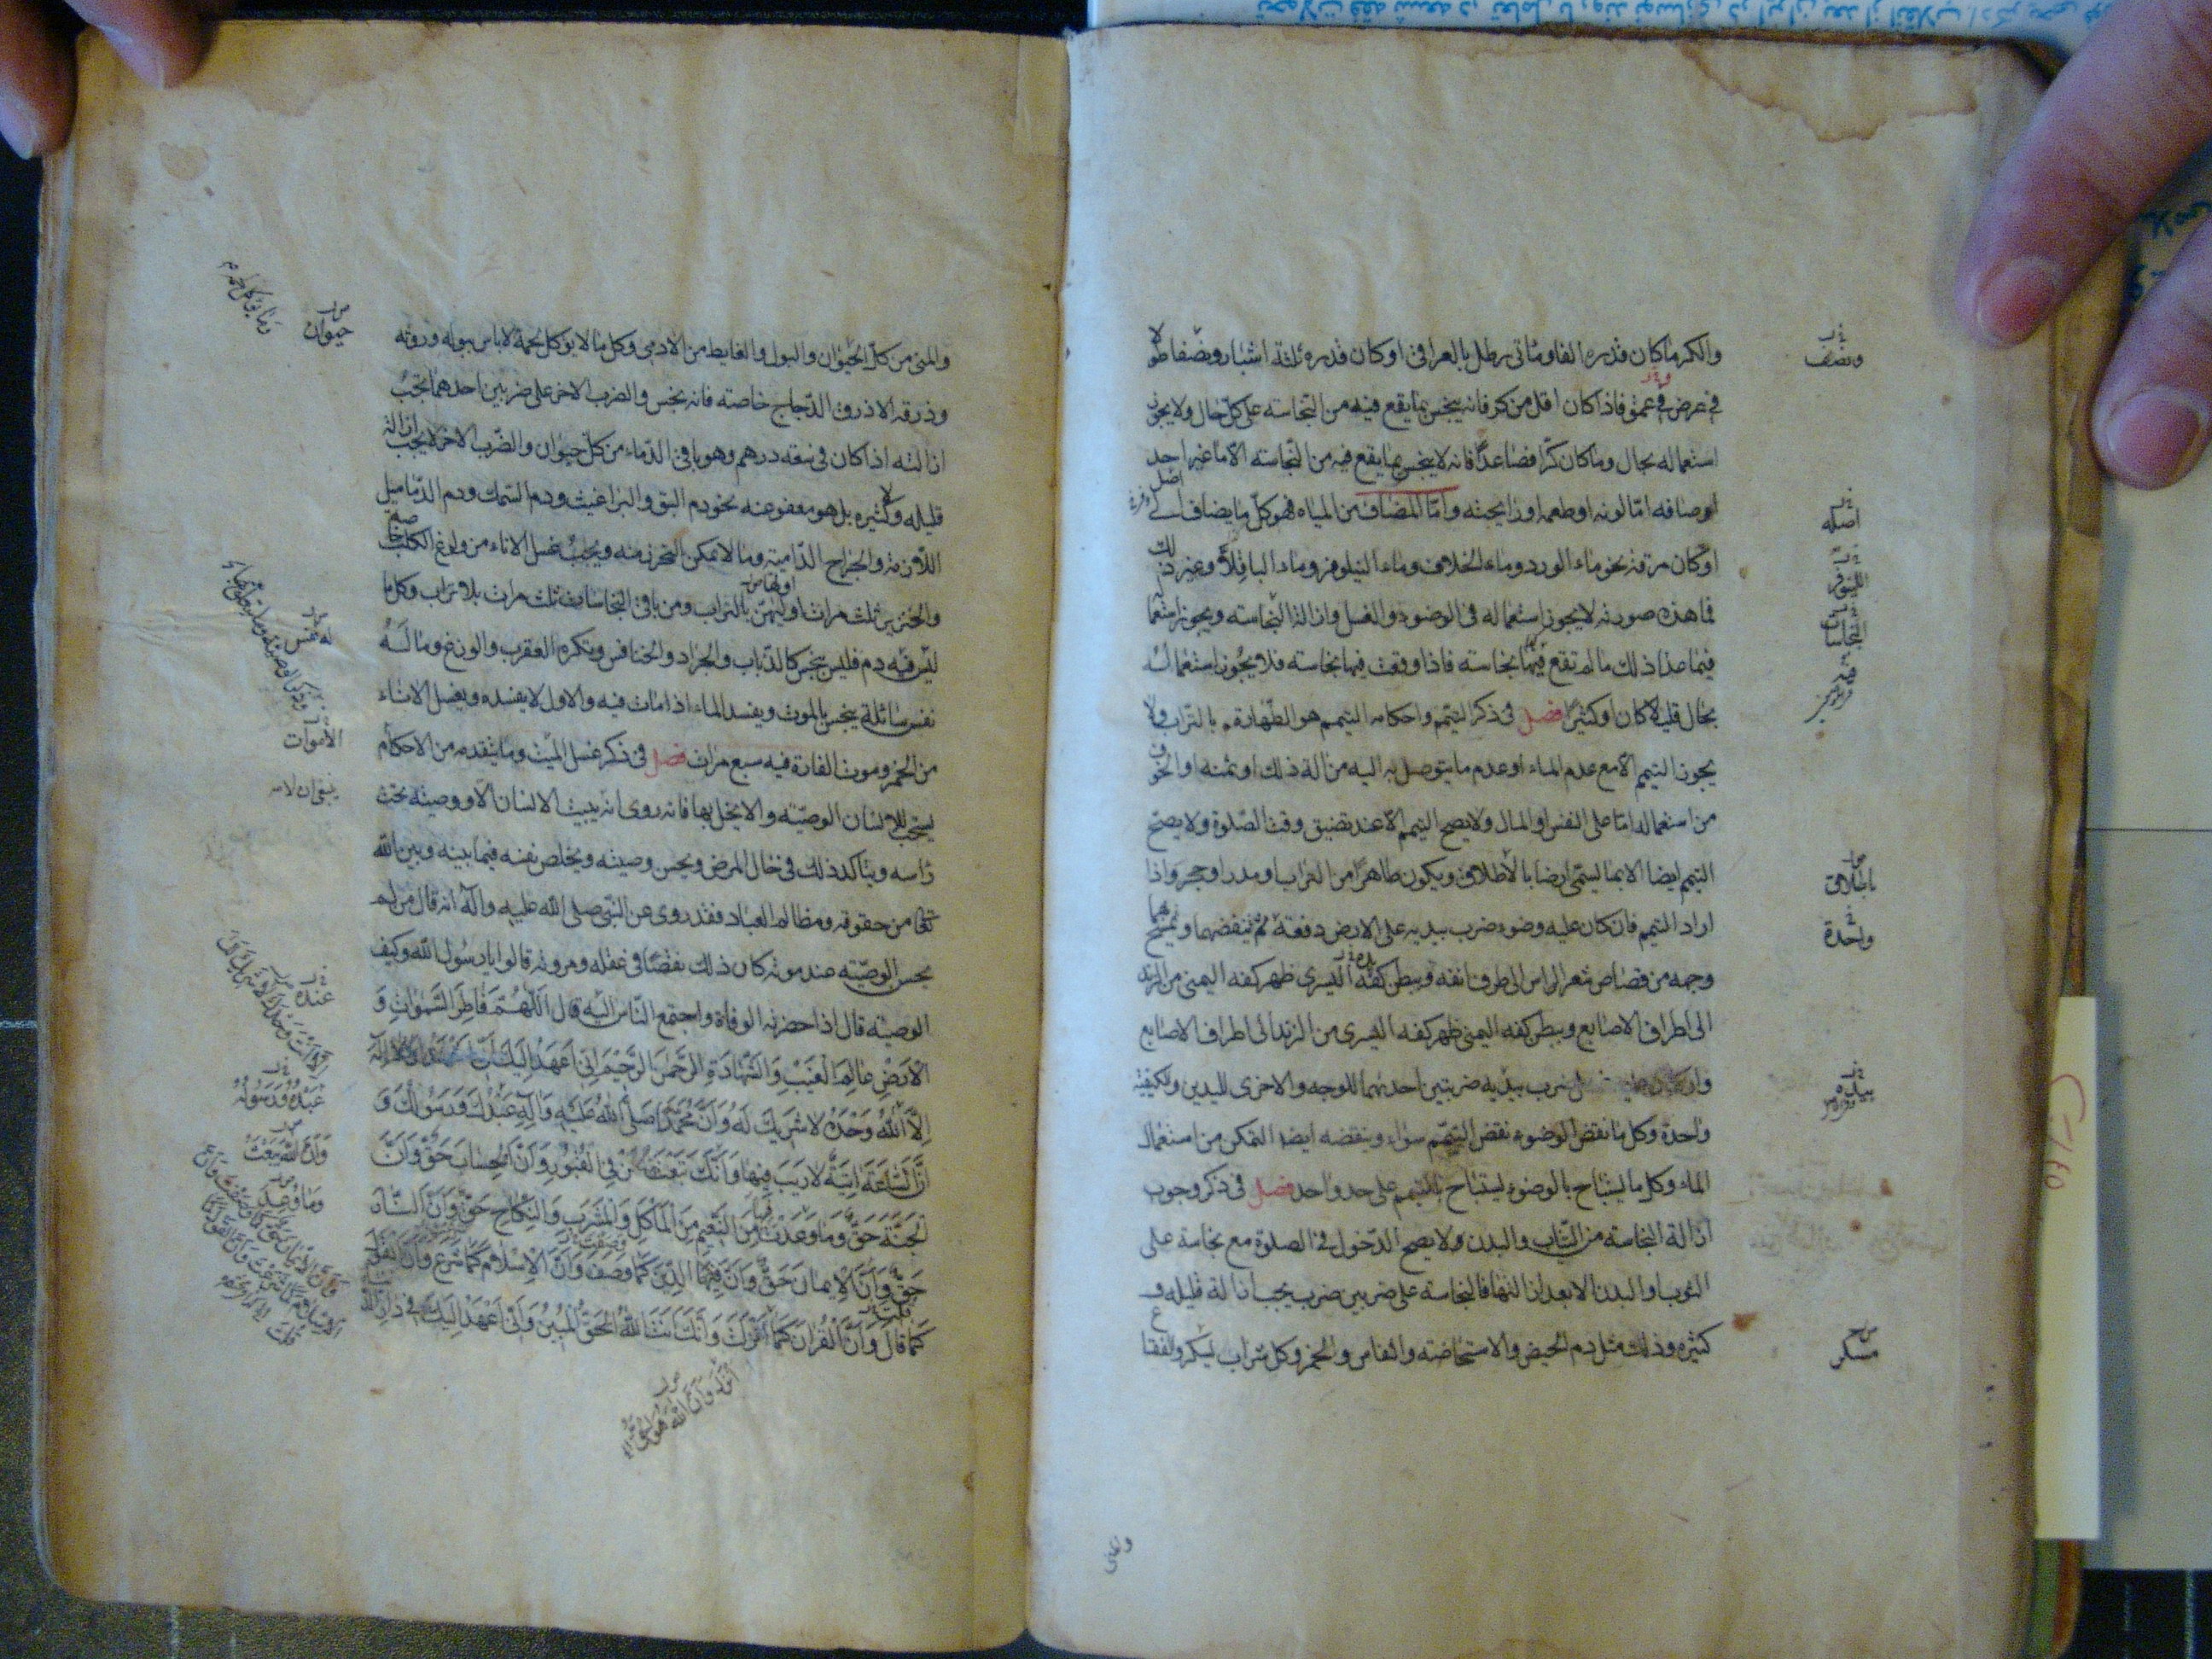 والكر ما كان قدره الفا وماتى رطل بالعراقى او كان قدره ثلثة اشبار ونصفا طولا
فى عرض فى عمق فاذا كان اقل من كر فانه ينجس بما يقع فيه من النجاسة على كل حال ولا يجوز
استعماله بحال وما كان كرا فصاعدا فانه لا ينجس بما يقع فيه من النجاسة الا ما غير احد
اوصافه اما لونه او طعمه او رايحته واما المضاف من المياه فهو كل ما يضاف الى اصل
او كان مرقة نحو ماء الورد وماء الخلاف وماء النيلوفر وماء الباقلا وغير ذلك
فما هذه صورته لا يجوز استعماله فى الوضوء والغسل وازالة النجاسة ويجوز استعماله
فيما عدا ذلك ما لم تقع فيها نجاسة فاذا وقعت فيها نجاسة فلا يجوز استعماله
بحال قليلا كان او كثيرا فصل فى ذكر التيمم واحكامه التيمم هو الطهارة بالتراب ولا
يجوز التيمم الا مع عدم الماء او عدم ما يتوصل به اليه من الة ذلك او ثمنه او الخوف
من استعماله اما على النفس او المال ولا يصح التيمم الا عند تضيق وقت الصلوة ولا يصح
التيمم ايضا الا بما يسمى ارضا بالاطلاق ويكون طاهرا من تراب او مدر او حجر واذا
اراد التيمم فان كان عليه وضوء ضرب بيديه على الارض دفعة ثم ينفضهما ويمسح بهما
وجهه من قصاص شعر الراس الى طرف انفه وببطن كفه اليسرى ظهر كفه اليمنى من الزند
الى اطراف الاصابع وببطن كفه اليمنى ظهر كفه اليسرى من الزند الى اطراف الاصابع
وان كان عليه غسل ضرب بيديه ضربتين احدهما للوجه والاخرى لليدين والكيفية
واحدة وكل ما نقض الوضوء نقض التيمم سواء وينقضه ايضا التمكن من استعمال
الماء وكل ما يستباح بالوضوء يستباح بالتيمم على حد واحد فصل فى ذكر وجوب
ازالة النجاسة من الثياب والبدن ولا يصح الدخول فى الصلوة مع نجاسة على
الثوب او البدن الا بعد ازالتها فالنجاسة على ضربين ضرب يجب ازالة قليله و
كثيره وذلك مثل دم الحيض والاستحاضة والنفاس والخمر وكل شراب ليسكر والفقاع
ونصف
اصله
اللينوفر
النجاسات
باطلاق
واحدة
بيده
مسكر
والمنى من كل الحيوان والبول والغايط من الادمى وكل ما لا يوكل لحمه لا باس ببوله وروثه
وذرقه الا ذرق الدجاج خاصة فانه نجس والضرب الاخر على ضربين احدهما تجب
ازالته اذا كان فى سعة درهم وهو باقى الدماء من كل حيوان والضرب الاخر لا يجب ازالة
قليله ولا كثيره بل هو معفو عنه نحو دم البق والبراغيث ودم السمك ودم الدماميل
اللازمة والجراح الدامية وما لا يمكن التحرز منه ويجب غسل الاناء من ولوغ الكلب خاصة
والخنزير ثلث مرات اوليهن بالتراب ومن باقى النجاسات ثلث مرات بلا تراب وكل ما
ليس فيه دم فليس بنجس كالذباب والجراد والخنافس ويكره العقرب والوزغ وما له
نفس سائلة ينجس بالموت ويفسد الماء اذا مات فيه والاول لا يفسده ويغسل الاناء
من الخمر وموت الفارة فيه سبع مرات فصل فى ذكر غسل الميت وما يتقدمه من الاحكام
يستحب للانسان الوصية والا يخل بها فانه روى انه يبيت الانسان الا ووصيته تحت
راسه ويتاكد ذلك فى حال المرض ويحسن وصيته ويخلص نفسه فيما بينه وبين الله
تعالى من حقوقه ومظالم العباد فقد روى عن النبى صلى الله عليه واله انه قال من لم
يحسن الوصية عند موته كان ذلك نقصا فى عقله ومروته قالوا يا رسول الله وكيف
الوصية قال اذا حضرته الوفاة واجتمع الناس اليه قال اللهم فاطر السموات و
الارض عالم الغيب والشهادة الرحمن الرحيم انى اعهد اليك انى اشهد ان لا اله
الا الله وحده لا شريك له وان محمدا صلى الله عليه واله عبدك ورسولك و
ان الساعة اتية لا ريب فيها وانك تبعث من فى القبور وان الحساب حق وان
الجنة حق وما وعدت فيها من النعيم من الماكل والمشرب والنكاح حق وان النار
حق وان الايمان حق وان الدين كما وصف وان الاسلام كما شرع وان القول
كما قال وان القران كما انزلت وانك انت الله الحق المبين وانى اعهد اليك فى دار الدنيا
حيوان
وما يوكل لحمه
له نفس
الاموات
ينبغى ان لا
عنده
عبده ورسوله
وان الله يبعث
وما وعد
انزل وان الله هو الحق